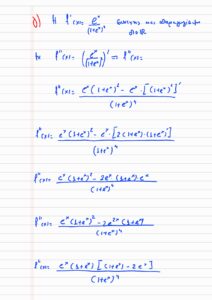 δ) Η f'(x) = e^x/(1+e^x)² συνεχής και παραγωγίσιμη στο ℝ
f''(x) = (e^x/(1+e^x)²)' ⇒ f''(x) =
f''(x) = (e^x(1+e^x)² - e^x·[(1+e^x)²]')/(1+e^x)⁴
f''(x) = (e^x(1+e^x)² - e^x·[2(1+e^x)·(1+e^x)'])/(1+e^x)⁴
f''(x) = (e^x(1+e^x)² - 2e^x(1+e^x)e^x)/(1+e^x)⁴
f''(x) = (e^x(1+e^x)² - 2e^{2x}(1+e^x))/(1+e^x)⁴
f''(x) = (e^x(1+e^x)[(1+e^x) - 2e^x])/(1+e^x)⁴